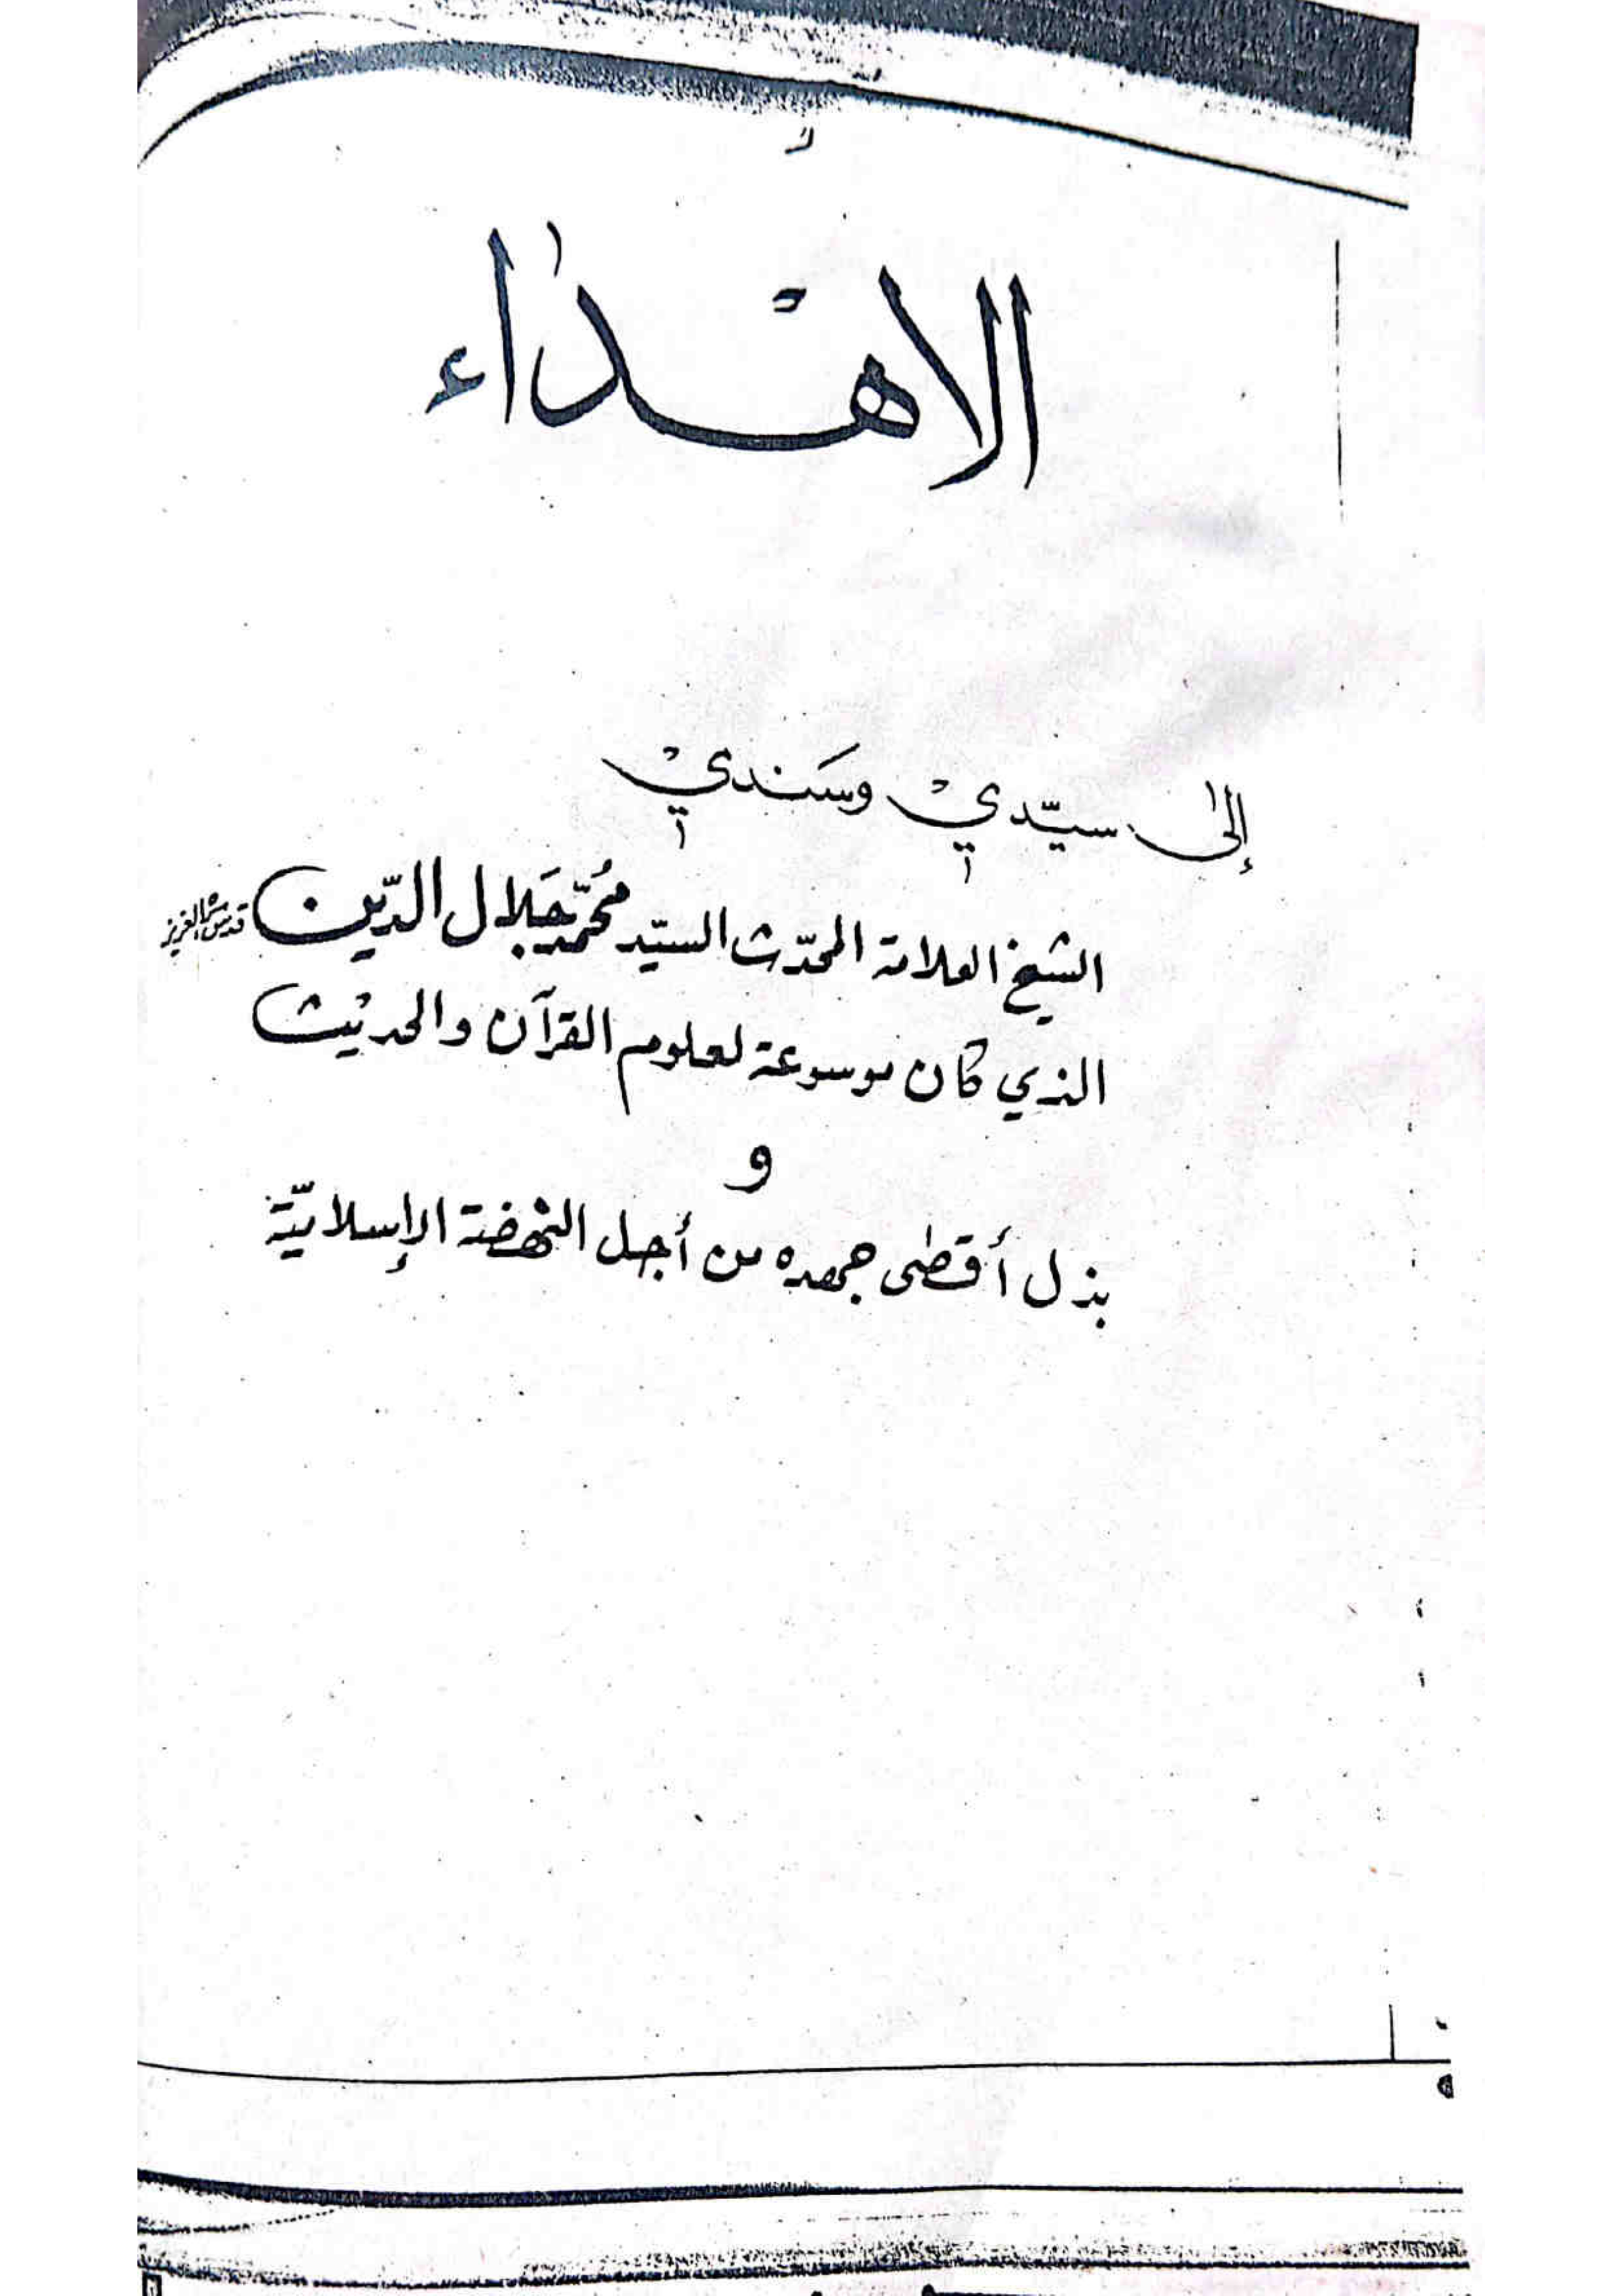 الاهْداء
إلىٰ سيّديْ وسَنديْ
الشيخ العلامة المحدّث السيّد مُحمّد جَلال الدّين قدس سره العزيز
الذي كان موسوعة لعلوم القرآن والحديْث
و
بذل أقصٰى جهده من أجل النهضة الإسلاميّة